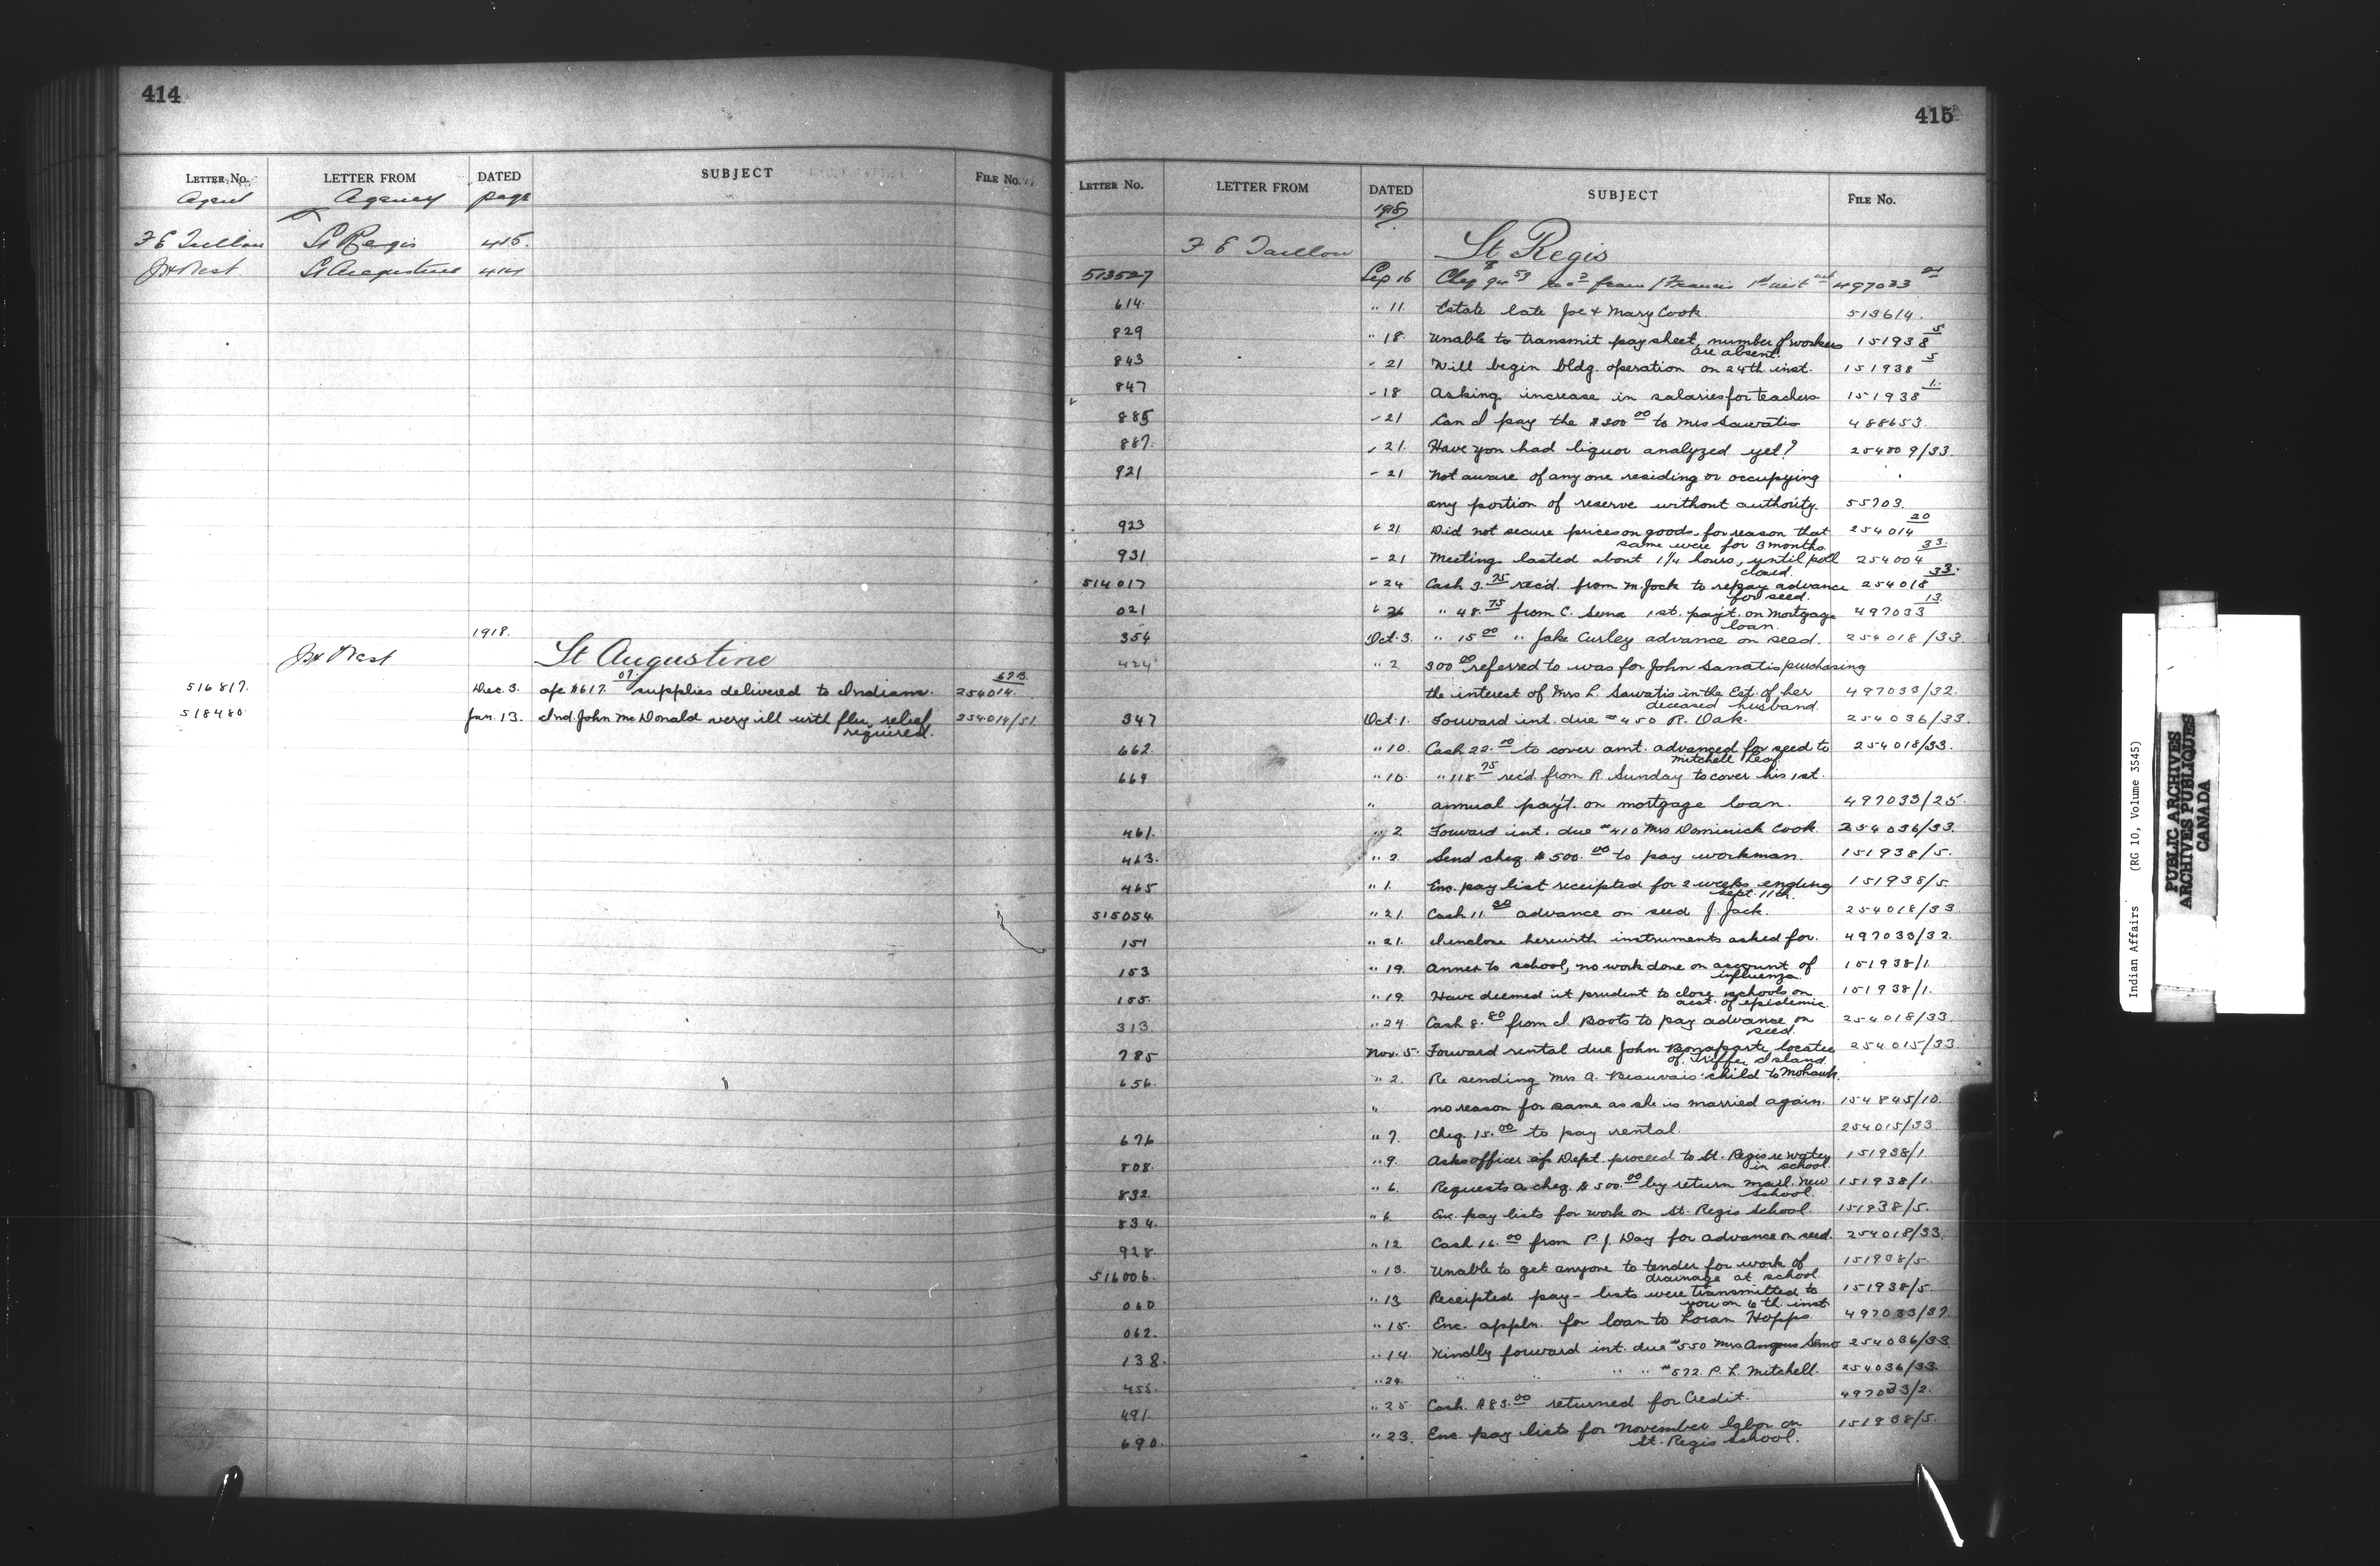 414
LETTER No. LETTER FROM DATED SUBJECT FILE No.
Agent Agency page
F E Taillon St Regis 415.
St Augustine 414
1918.
St Augustine
516817. Dec. 3. a/c $617.07 supplies delivered to Indians. 254014
518480 Jan. 13. Ind John McDonald very ill with flu, relief 254014/51
required.
415
LETTER No. LETTER FROM DATED SUBJECT FILE No.
1918
F E Taillon St Regis
513527 Sep 16 from Francis 497033
614. " 11. Estate late Joe & Mary Cook. 513614.
829 " 18. Unable to transmit pay sheet, number of workers 151938 5
are absent.
843 " 21 Will begin bldg. operation on 24th inst. 151938 5
847 " 18 Asking increase in salaries for teachers 151938 1.
885 " 21 Can I pay the $300 00 to Mrs Sawatis 488653.
887. " 21. Have you had liquor analyzed yet? 254009/33.
921 " 21 Not aware of any one residing or occupying
any portion of reserve without authority. 55703.
923 " 21 Did not secure prices on goods, for reason that 254014 20
same were for 3 months.
931 " 21 Meeting lasted about 1¼ hours, until poll 254004 33.
closed.
514017 " 24 Cash 3.75 rec'd. from M. Jock to repay advance 254018 33.
for seed.
021 " 26 " 48.75 from C. 1st. pay't. on mortgage 497033 13.
loan.
354 Oct. 3. " 15 00 " Jake Curley advance on seed. 254018/33
424 " 2 300 00 referred to was for John Sanatis purchasing
the interest of Mrs L. Sawatis in the Est. of her 497033/32.
deceased husband.
347 Oct. 1. Forward int. due #450 R. Oak. 254036/33.
662. " 10. Cash 22.00 to cover amt. advanced for seed to 254018/33.
Mitchell Leaf.
664 " 10. " 118.75 rec'd from R. Sunday to cover his 1st.
" annual pay't. on mortgage loan. 497033/25.
461. " 2. Forward int. due #410 Mrs Dominick Cook. 254036/33.
463. " 2. Send cheq. $500.00 to pay workman. 151938/5.
465 " 1. Enc. pay list receipted for 2 weeks ending 151938/5.
Sept. 11th.
515054. " 21. Cash 11. advance on seed J. Jack. 254018/33
151 " 21. I enclose herewith instruments asked for. 497033/32.
153 " 19. Annex to school, no work done on account of 151938/1.
influenza.
155. " 19. Have deemed it prudent to close schools on 151938/1.
acct. of epidemic.
313. " 24. Cash 8.80 from I. Boots to pay advance on 254018/33.
seed.
785 Nov. 5. Forward rental due John Bonaparte, locatee 254015/33
of Island.
656. " 2. Re sending Mrs A. Beauvais' child to Mohawk.
" no reason for same as she is married again. 154845/10.
676 " 7. Cheq. 15.00 to pay rental. 254015/33
808. " 9. Asks officer of Dept. proceed to St. Regis re water 151938/1
in school.
832. " 6. Requests a cheq. $500.00 by return mail. New 151938/1.
school.
834. " 6. Enc. pay lists for work on St. Regis School. 151938/5.
928. " 12 Cash 16.00 from P. J. Day for advance on seed. 254018/33.
516006. " 13. Unable to get anyone to tender for work of 151938/5.
drainage at school.
060 " 13 Receipted pay-lists were transmitted to 151938/5.
you on 6th. inst.
062. " 15. Enc. appln. for loan to Loran Hopps. 497033/37.
138. " 14. Kindly forward int. due #550 Mrs Angus 254036/33.
455. " 24. " " " " #572 P. L. Mitchell. 254036/33.
491. " 25. Cash. $83.00 returned for Credit. 497033/2.
690. " 23. Enc. pay lists for November labor on 151938/5.
St. Regis School.
Indian Affairs (RG 10, Volume 3545)
PUBLIC ARCHIVES
ARCHIVES PUBLIQUES
CANADA